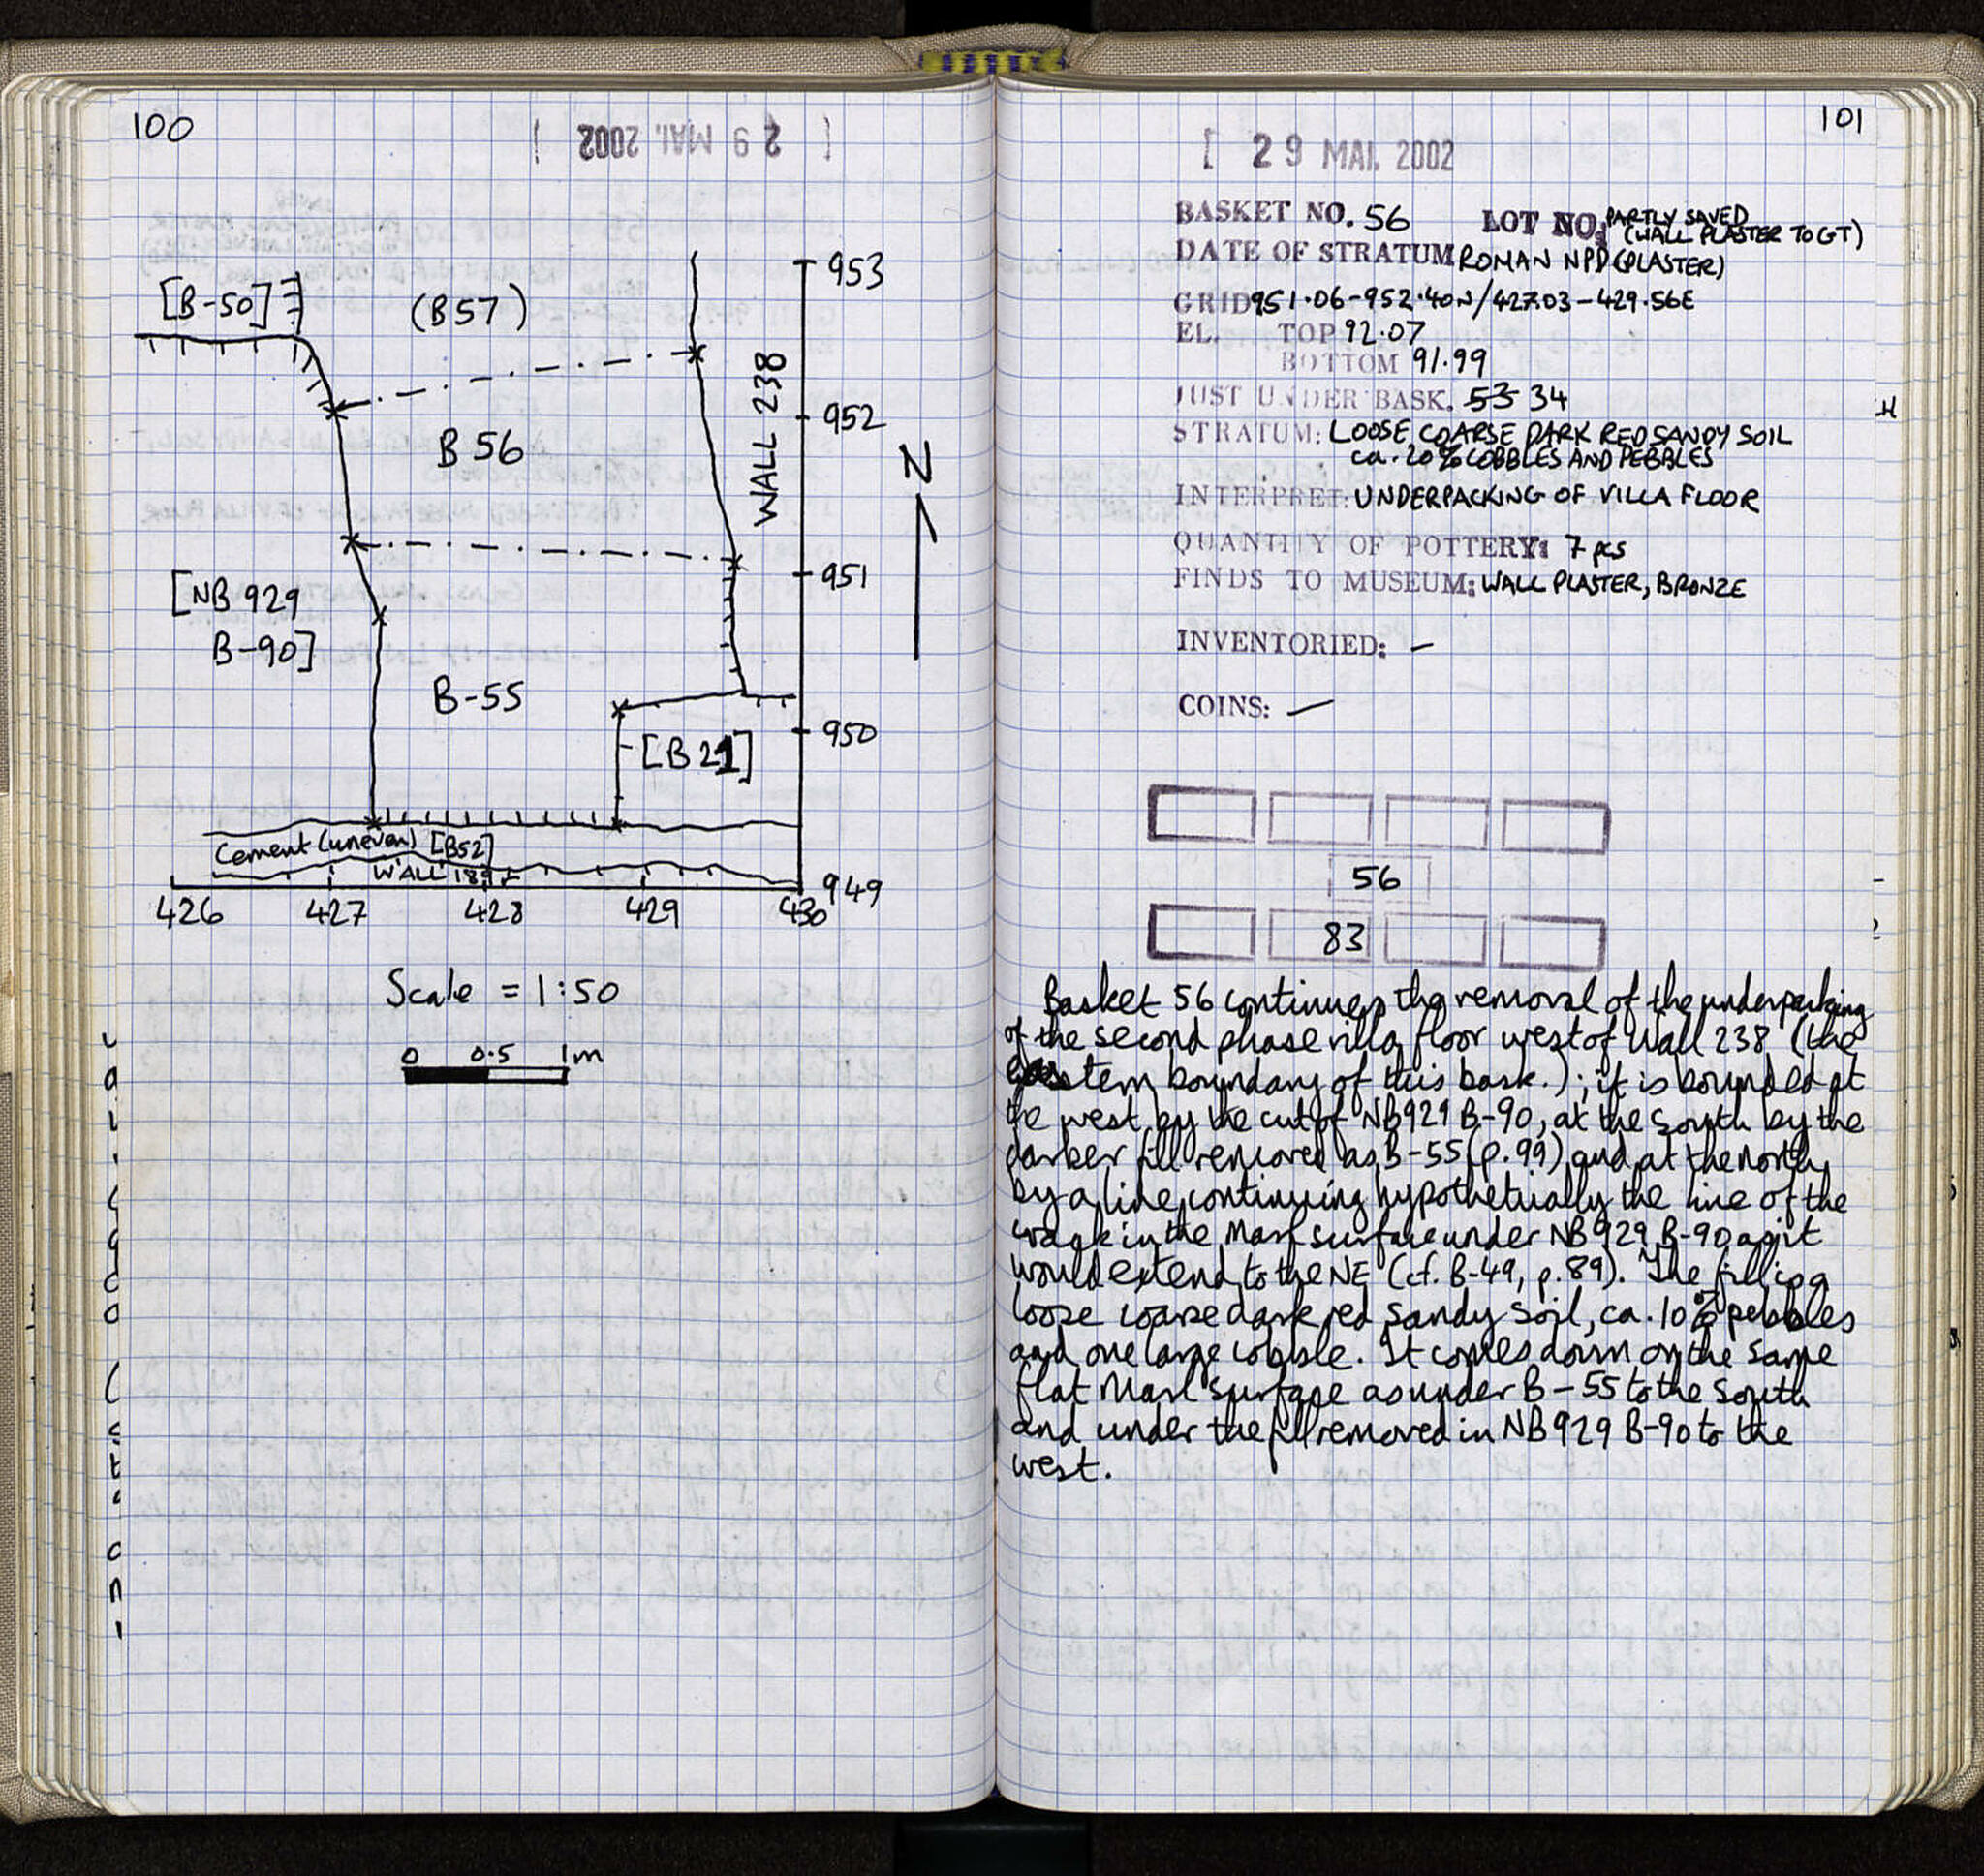 100
29 MAI. 2002
[B-50]
(B57)
953
WALL 238
952
B56
N
951
[NB 929
B-90]
B-55
950
[B21]
Cement (uneven) [B52]
WALL 189
949
426 427 428 429 430
Scale = 1:50
0 0.5 1m
101
[ 29 MAI. 2002
BASKET NO. 56 LOT NO: PARTLY SAVED
(WALL PLASTER TO GT)
DATE OF STRATUM ROMAN NPD (PLASTER)
GRID 951.06-952.40N/427.03-429.56E
EL. TOP 92.07
BOTTOM 91.99
JUST UNDER BASK. 53 34
STRATUM: LOOSE COARSE DARK RED SANDY SOIL
ca. 20% COBBLES AND PEBBLES
INTERPRET: UNDERPACKING OF VILLA FLOOR
QUANTITY OF POTTERY: 7 pcs
FINDS TO MUSEUM: WALL PLASTER, BRONZE
INVENTORIED: –
COINS: –
56
83
Basket 56 continues the removal of the underpacking
of the second phase villa floor west of Wall 238 (the
eastern boundary of this bask.); it is bounded at
the west by the cut of NB929 B-90, at the south by the
darker fill removed as B-55 (p.99) and at the north
by a line continuing hypothetically the line of the
crack in the Marl surface under NB929 B-90 as it
would extend to the NE (cf. B-49, p.89). The fill is a
loose coarse dark red sandy soil, ca. 10% pebbles
and one large cobble. It comes down on the same
flat Marl surface as under B-55 to the south
and under the fill removed in NB929 B-90 to the
west.